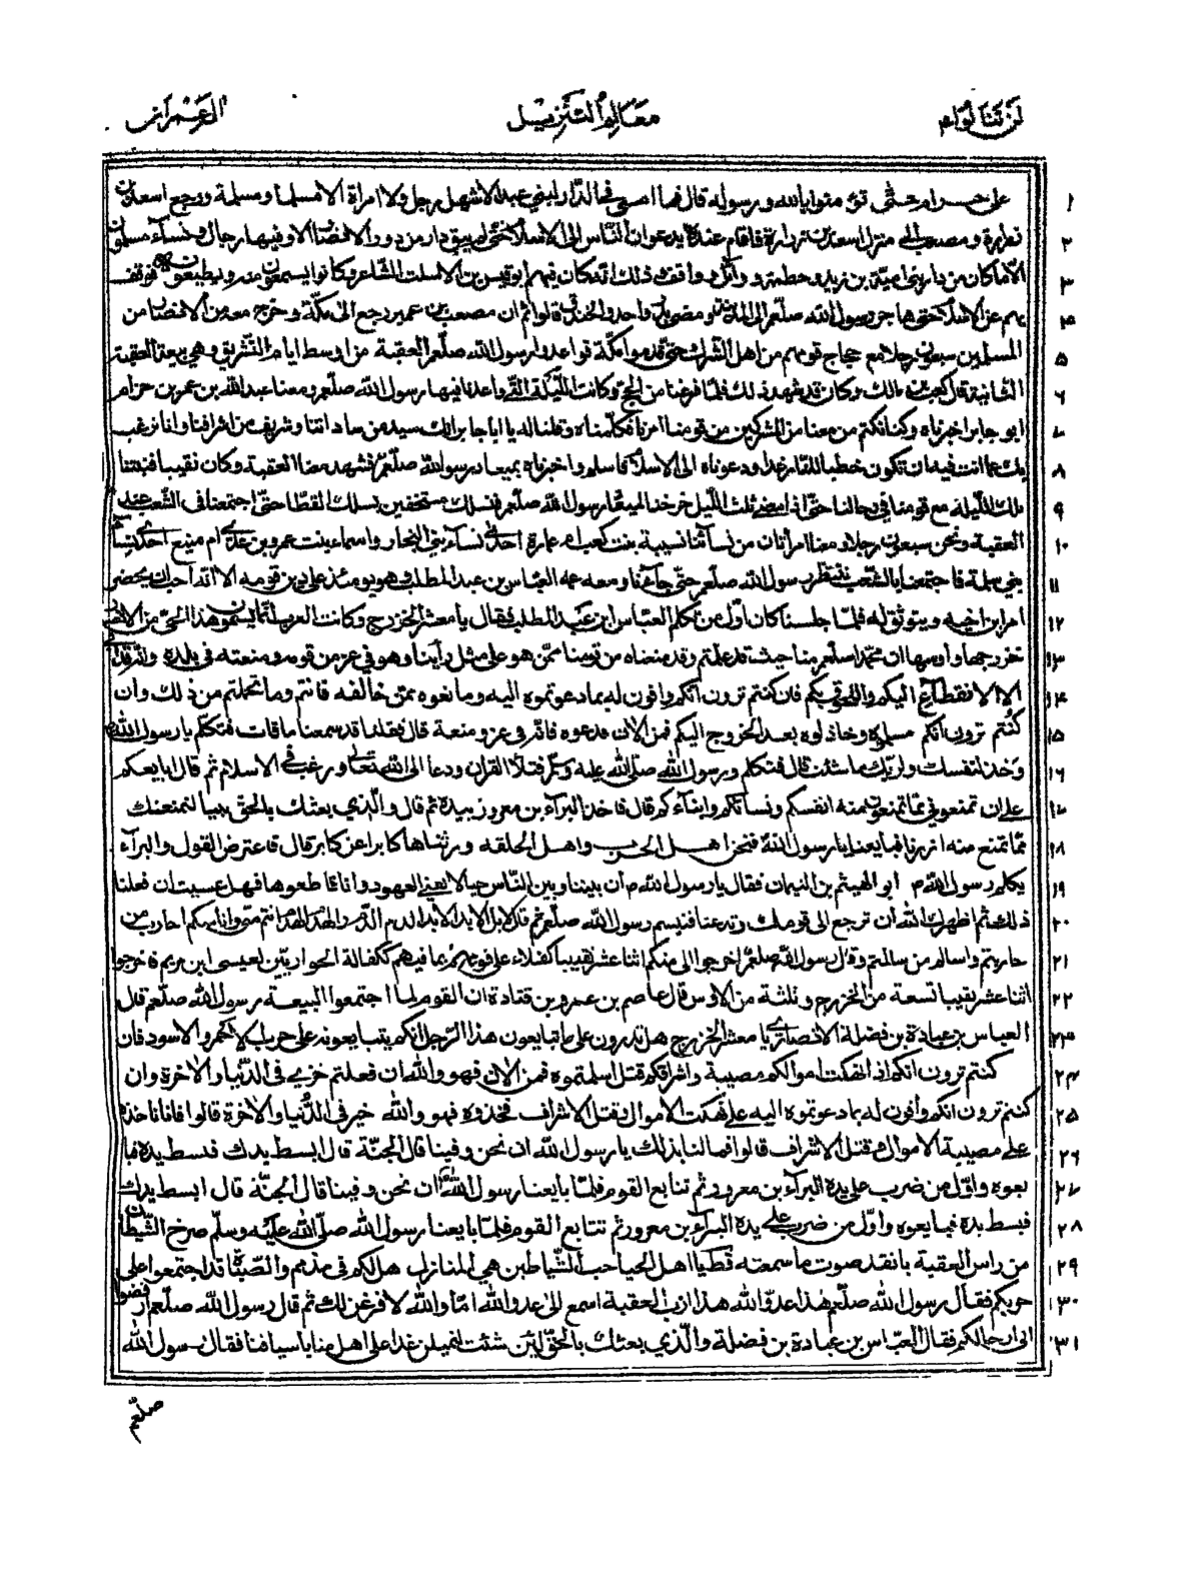 لن تنالوا٤
معالم التنزيل
اٰل عمران
١ على حرام حتى تؤمنوا بالله ورسوله قال فما امسى فى الدار لبنى عبد الاشهل رجل ولا امراة الا مسلما ومسلمة ورجع اسعد بن
٢ زرارة ومصعب الى منزل اسعد بن زرارة فاقام عنده يدعوان الناس الى الاسلام حتى لم يبق دار من دور الانصار الا وفيها رجال ونساء مسلمون
٣ الا ما كان من دار بنى امية بن زيد وخطمة ووائل وواقف وذلك انه كان فيهم ابو قيس بن الاسلت الشاعر وكانوا يسمعون منه ويطيعونه فوقف
٤ بهم عن الاسلام حتى هاجر رسول الله صلعم الى المدينة ومضى بدر واحد والخندق قالوا ثم ان مصعب بن عمير رجع الى مكة وخرج معه من الانصار من
٥ المسلمين سبعون رجلا مع حجاج قومهم من اهل الشرك حتى قدموا مكة فواعدوا رسول الله صلعم العقبة من اوسط ايام التشريق وهى بيعة العقبة
٦ الثانية قال كعب بن مالك وكان قد شهد ذلك فلما فرغنا من الحج وكانت الليلة التى واعدنا فيها رسول الله صلعم ومعنا عبد الله بن عمرو بن حزام
٧ ابو جابر اخبرناه وكنا نكتم من معنا من المشركين من قومنا امرنا فكلمناه وقلنا له يا ابا جابر انك سيد من ساداتنا وشريف من اشرافنا وانا نرغب
٨ بك عما انت فيه ان تكون حطبا للنار غدا ودعوناه الى الاسلام فاسلم واخبرناه بميعاد رسول الله صلعم فشهد معنا العقبة وكان نقيبا فبتنا
٩ تلك الليلة مع قومنا فى رحالنا حتى اذا مضى ثلث الليل خرجنا لميعاد رسول الله صلعم نتسلل مستخفين تسلل القطا حتى اجتمعنا فى الشعب عند
١٠ العقبة ونحن سبعون رجلا ومعنا امرأتان من نسائنا نسيبة بنت كعب ام عمارة احدى نساء بنى النجار واسماء بنت عمرو بن عدى ام منيع احدى نساء
١١ بنى سلمة فاجتمعنا بالشعب ننتظر رسول الله صلعم حتى جاءنا ومعه عمه العباس بن عبد المطلب وهو يومئذ على دين قومه الا انه احب ان يحضر
١٢ امر ابن اخيه ويتوثق له فلما جلسنا كان اول من تكلم العباس ابن عبد المطلب فقال يا معشر الخزرج وكانت العرب انما يسمون هذا الحى من الانصار
١٣ خزرجها واوسها ان محمدا صلعم منا حيث قد علمتم وقد منعناه من قومنا ممن هو على مثل رأينا وهو فى عز من قومه ومنعته فى بلده وانه قد ابى
١٤ الا الانقطاع اليكم واللحوق بكم فان كنتم ترون انكم وافون له بما دعوتموه اليه ومانعوه ممن خالفه فانتم وما تحملتم من ذلك وان
١٥ كنتم ترون انكم مسلموه وخاذلوه بعد الخروج اليكم فمن الان فدعوه فانه فى عز ومنعة قال فقلنا قد سمعنا ما قلت فتكلم يا رسول الله
١٦ وخذ لنفسك ولربك ما شئت قال فتكلم رسول الله صلى الله عليه وسلم فتلا القران ودعا الى الله تعالى ورغب فى الاسلام ثم قال ابايعكم
١٧ على ان تمنعونى مما تمنعون منه انفسكم ونساءكم وابناءكم قال فاخذ البراء بن معرور بيده ثم قال والذى بعثك بالحق نبيا لنمنعنك
١٨ مما نمنع منه ازرنا فبايعنا يا رسول الله فنحن اهل الحرب واهل الحلقة ورثناها كابرا عن كابر قال فاعترض القول والبراء
١٩ يكلم رسول الله م ابو الهيثم بن التيهان فقال يا رسول الله م ان بيننا وبين الناس حبالا يعنى العهود وانا قاطعوها فهل عسيت ان فعلنا
٢٠ ذلك ثم اظهرك الله ان ترجع الى قومك وتدعنا فتبسم رسول الله صلعم ثم قال الدم الدم والهدم الهدم انتم منى وانا منكم احارب من
٢١ حاربتم واسالم من سالمتم وقال رسول الله صلعم اخرجوا الى منكم اثنا عشر نقيبا كفلاء على قومهم بما فيهم ككفالة الحواريين لعيسى ابن مريم فاخرجوا
٢٢ اثنا عشر نقيبا تسعة من الخزرج وثلثة من الاوس قال عاصم بن عمرو بن قتادة ان القوم لما اجتمعوا لبيعة رسول الله صلعم قال
٢٣ العباس بن عبادة بن فضلة الانصارى يا معشر الخزرج هل تدرون على ما تبايعون هذا الرجل انكم تبايعونه على حرب الاحمر والاسود فان
٢٤ كنتم ترون انكم اذا نهكت اموالكم مصيبة واشرافكم قتل اسلمتموه فمن الان فهو والله ان فعلتم خزى فى الدنيا والاخرة وان
٢٥ كنتم ترون انكم وافون له بما دعوتموه اليه على نهكت الاموال وقتل الاشراف فخذوه فهو والله خير فى الدنيا والاخرة قالوا فانا ناخذه
٢٦ على مصيبة الاموال وقتل الاشراف قالوا فما لنا بذلك يا رسول الله ان نحن وفينا قال الجنة قال ابسط يدك فبسط يده فبا
٢٧ يعوه واول من ضرب على يده البراء بن معرور ثم تتابع القوم فلما بايعنا رسول الله ان نحن وفينا قال الجنة قال ابسط يدك
٢٨ فبسط يده فبايعوه واول من ضرب على يده البراء بن معرور ثم تتابع القوم فلما بايعنا رسول الله صلى الله عليه وسلم صرخ الشيطان
٢٩ من راس العقبة بانفد صوت ما سمعته قط يا اهل الحباحب الشياطين هى المنازل هل لكم فى مذمم والصباة قد اجتمعوا على
٣٠ حربكم فقال رسول الله صلعم هذا عدو الله هذا ازب العقبة اسمع اى عدو الله اما والله لافرغن لك ثم قال رسول الله صلعم ارفضوا
٣١ الى رحالكم فقال العباس بن عبادة بن فضلة والذى بعثك بالحق لئن شئت لنميلن غدا على اهل منا باسيافنا فقال رسول الله
صلعم